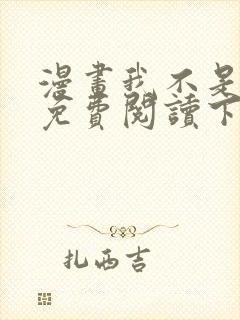 漫畫我不是
免費閱讀下
扎西吉